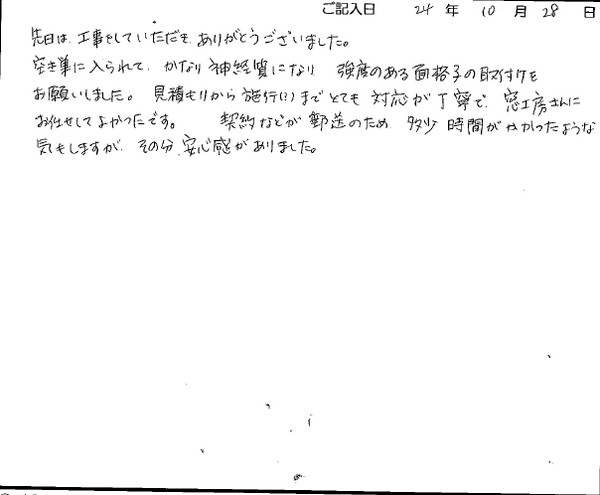 ご記入日 24 年 10 月 28 日
先日は、工事をしていただき、ありがとうございました。
空き巣に入られて、かなり神経質になり 強度のある面格子の取付けを
お願いしました。 見積もりから施行(?)までとても 対応が丁寧で、窓工房さんに
お任せしてよかったです。 契約などが郵送のため 多少 時間がかかったような
気もしますが、その分、安心感がありました。